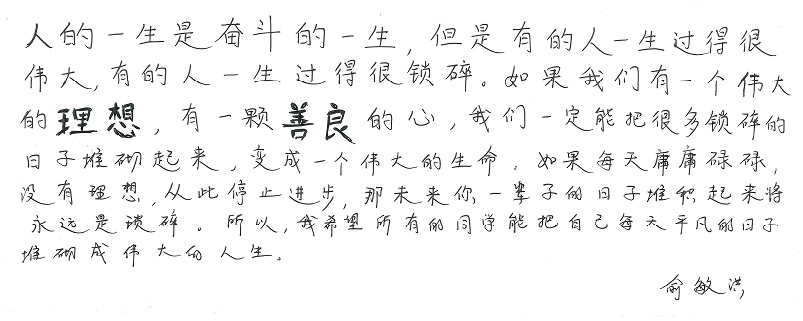 人的一生是奋斗的一生，但是有的人一生过得很
伟大，有的人一生过得很锁碎。如果我们有一个伟大
的理想，有一颗善良的心，我们一定能把很多锁碎的
日子堆砌起来，变成一个伟大的生命。如果每天庸庸碌碌，
没有理想，从此停止进步，那未来你一辈子的日子堆积起来将
永远是锁碎。所以，我希望所有的同学能把自己每天平凡的日子
堆砌成伟大的人生。
俞敏洪